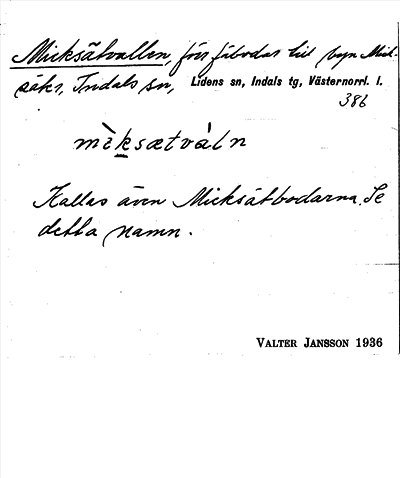 Micksätvallen, förr fäbodar till byn Mick-
säter, Indals sn, Lidens sn, Indals tg, Västernorrl. l.
386
mìksætvàln
Kallas även Micksätbodarna. Se
detta namn.
VALTER JANSSON 1936